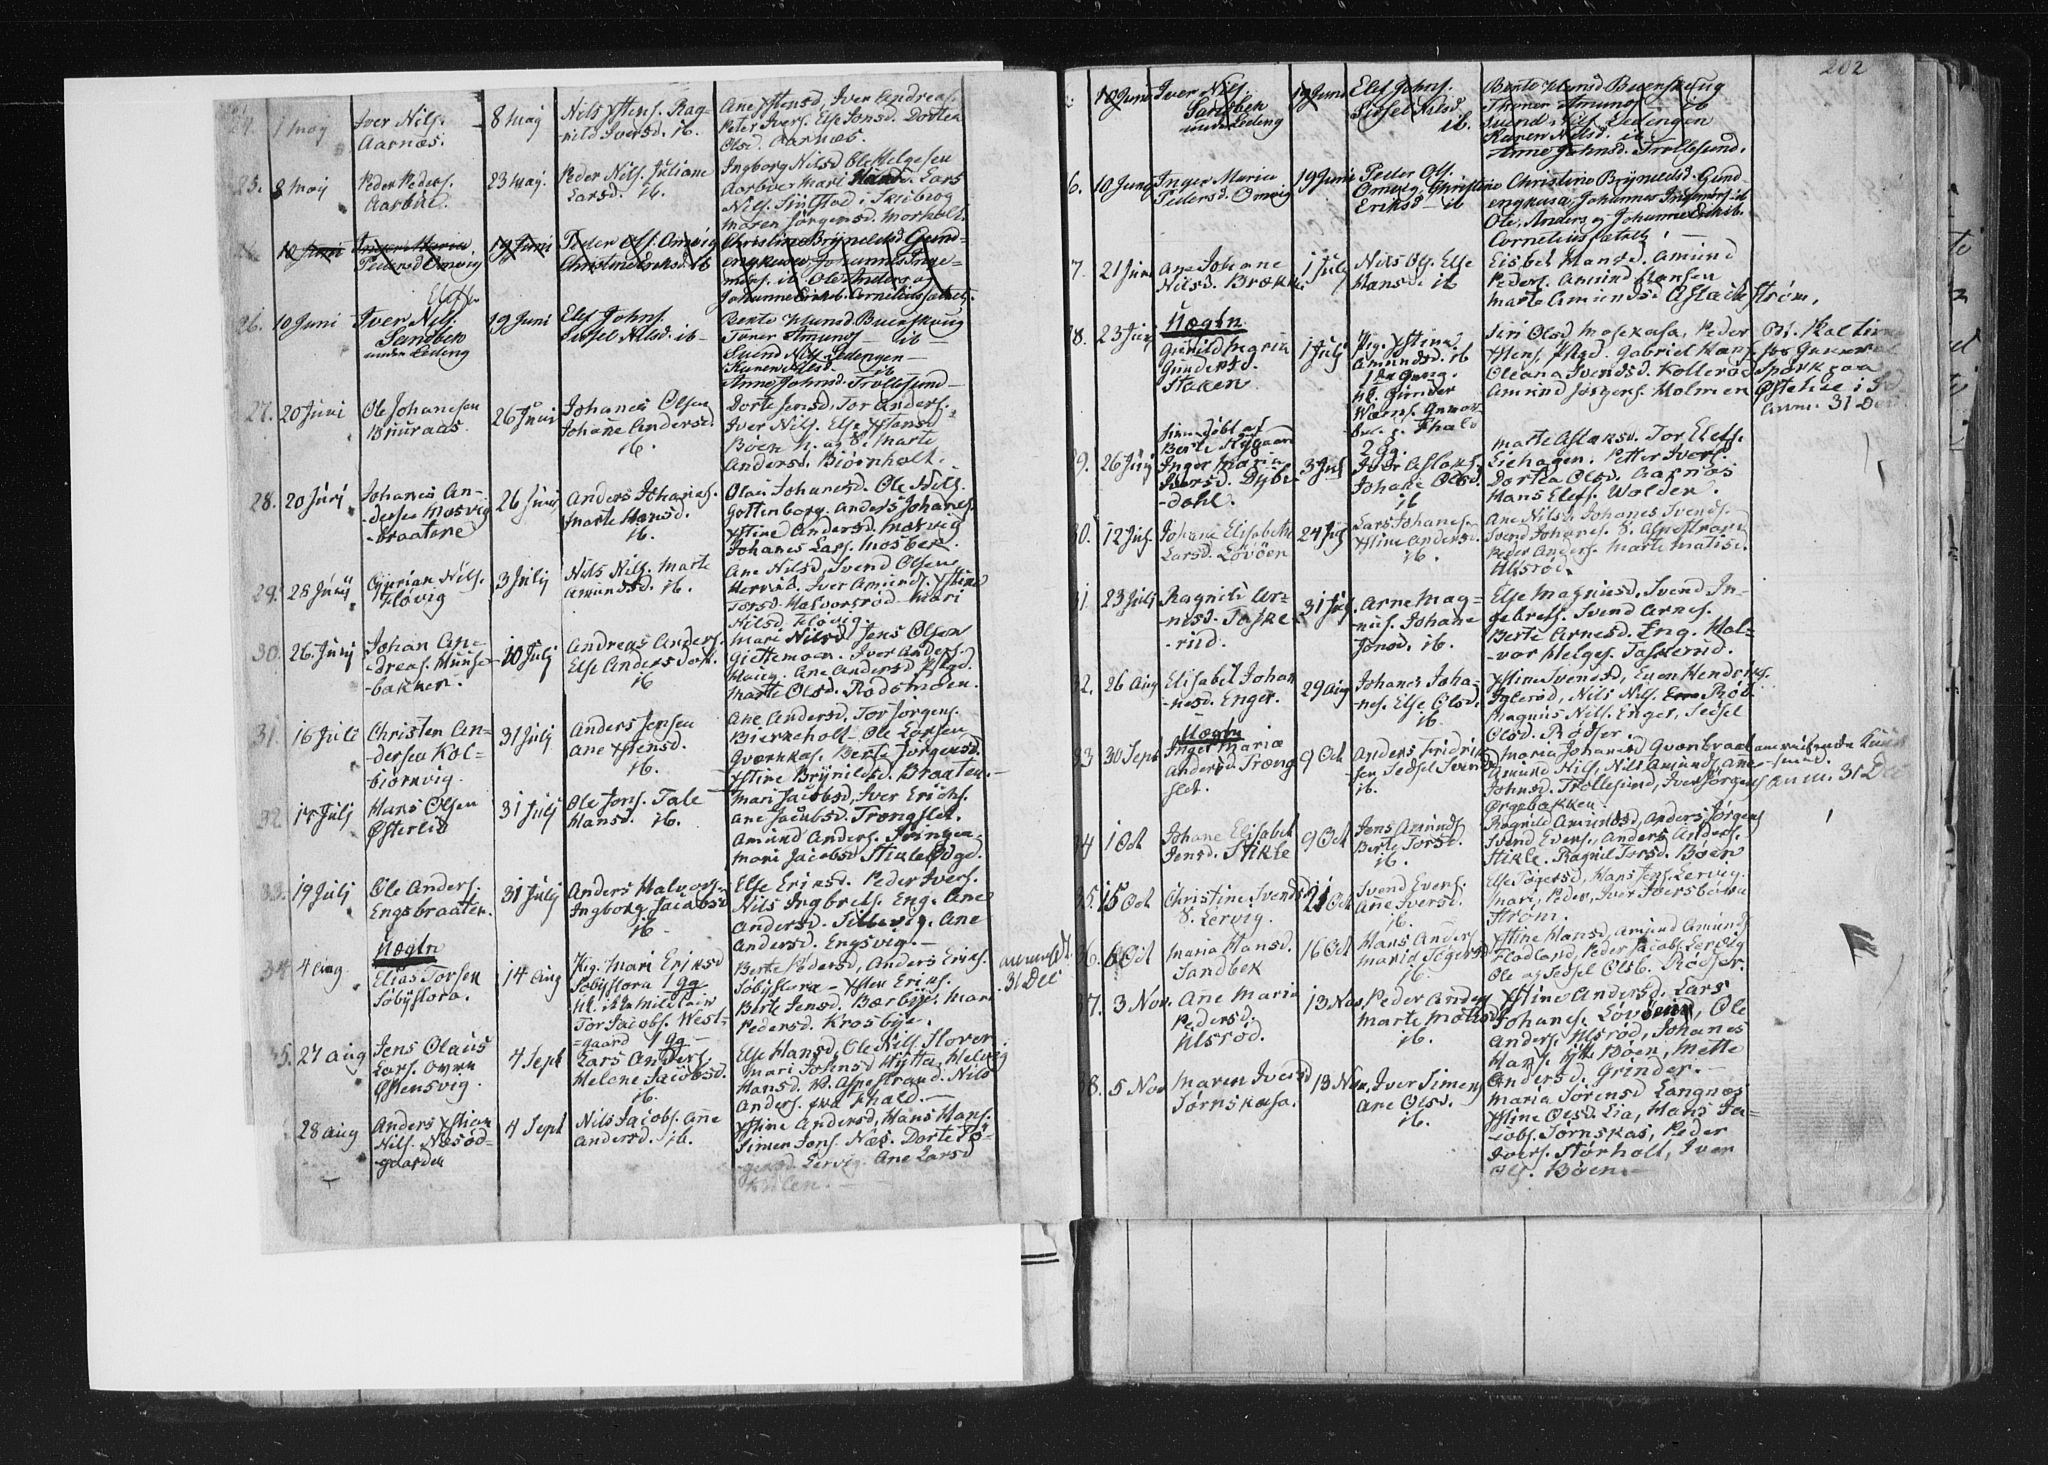 24. 1 may
Iver Nils.
Aarnæs.
8 may
Nils Xstens. Rag-
nild Iversd. ib.
Ane Xstensd, Iver Andreas.
Peter Ivers. Else Jonsd. Dortea
Olsd. Aarnæs.
25. 8 may
Peder Peders.
Aarbue.
23 may.
Peder Nils. Juliane
Larsd. ib.
Ingborg Nilsd Ole Helgesen
Aarbue Mari Lars
Nils. i Skiberg
Maren Jørgensd. Morholt.
10 Juni
Inger Maria
Pedersd Omvig
19 Juni
Peder Ols. Omvig
Christine Eriksd. ib
Christine Brÿnildsd Gund-
engkasa Johannes Inge-
mors. ib Ole Anders og
Johanne Eriksb. Cornelius
26. 10 Juni
Iver Nils.
Sandbek
under Leding
19 Juni
Elef Johns.
Sissel Nilsd. ib
Bente Hansd Buerskoug
Toner Amunds — ib
Svend Nils. Ledengen —
Karen Nilsd. — ib
Anne Johnsd. Trollesund —
27. 20 Juni
Ole Johanesen
Buuraas.
26 Juni
Johanes Olsen
Johane Andersd.
ib.
Dorte Jensd, Tor Anders.
Iver Nils. Else Hansd
Bøen N. og S. Marte
Andersd. Biørnholt.
28. 20 Juni
Johanes An-
dersen Mosvig
-braatene
26 Juni
Anders Johanes.
Marte Hansd.
ib.
Olai Johanesd. Ole Nils.
Gottenborg. Anders Johanes.
Xstine Andersd. Mosvig
Johanes Lars. Mosbek.
29. 28 Junij
Nils.
Fløvig
3 Julij
Nils Nils. Marte
Amundsd. ib.
Ane Nilsd, Svend Olsen
Iver Amunds. Xstine
Torsd. Halvorsrød Mari
Nilsd. Fløvig.
30. 26. Junij
Johan An-
-dreas. Huuse-
bakken.
10 Julj
Andreas Anders.
Else Andersdat.
ib
Mari Nilsd Jens Olsen
Giettemoen. Iver Anders.
Haug. Ane Andersd. Pstgd.
Marte Olsd. Rødsmoen.
31. 16 Juli
Christen An-
dersen Kol-
biørnvig.
31 Julj
Anders Jensen
Ane Xstensd.
ib.
Ane Andersd. Tor Jørgens.
Bierkeholt. Ole Larsen
Berte Jørgensd.
Xstine Brÿnildsd. Braaten. —
32 17 Julj
Hans Olsen
Østerlid
31 Julj
Ole Jons. Tale
Hansd. ib.
Mari Jacobsd, Iver Erichs.
Ane Jacobsd. Trængslet.
Amund Anders. Svingen.
Mari Jacobsd Stikle Ødgd.
33. 19 Julj
Ole Anders.
Engsbraaten.
31 Julj
Anders Halvors.
Ingborg. Jacobsd
ib
Else Eriksd. Peder Ivers.
Nils Ingbrets. Eng. Ane
Andersd. Ane
Andersd. Engsvig. —
34 4 Aug.
Uægtn
Elias Torsen
Søbÿstora.
14 Aug
Pig. Mari Eriksd
Søbÿstora 1 gg
Tor Jacobs. West-
=gaard 1 gg —
Berte Pedersd, Anders Eriks.
Søbÿstora — Xsten Eriks.
Berte Jensd. Bærbÿe, Mari
Pedersd. Krosbÿe.
31 Dec
35. 27 Aug
Jens Olaus
Lars. Øvre
Østensvig.
4 Sept
Lars Anders.
Helene Jacobsd.
ib.
Else Hansd, Ole Nils. Sloveri
Mari Johnsd Hÿtta, Helvig
Hansd. V. Alpestrand. Nils
Anders. fra Fhald. —
28 Aug
Anders Xstian
Nils. Næsød-
-gaarden
4 Sept
Nils Jacobs. Ane
Andersd. ib.
Xstine Andersd, Hans Hans.
Simen Jons. Næs. Dorte Tö-
gersd. Lervig. Ane Larsd
202
10 Juni
Iver Nils.
Sandbek
under Leding
19 Juni
Elef Johns.
Sissel Nilsd.
ib.
Bente Hansd Buerskoug
Thoner Amunds ib
Svend Nils. Ledengen
Karen Nilsd. ib
Anne Johnsd. Trollesund.
6. 10 Juni
Inger Maria
Pedersd. Omvig
19 Juni
Peder Ols.
Omvig. Christine
Eriksd — ib
Christine Brÿnildsd. Gund-
engkasa, Johannes Ingemors. ib
Ole, Anders og Johanne Eriksb.
Cornelius
7. 21 Juni
Ane Johane
Nilsd. Brække
1 July
Nils Ols. Else
Hansd. ib
Eisbet Hansd. Amund
Peders. Amund Hansen
Marte Amundsd. Aslak Strøm.
28. 23 Junj
Uægtn
Gunild Maria
Gundersd.
Staken.
1 Julj
Pig. Xstine
Amundsd. ib
Siri Olsd Mosekasa, Peder
Xstens. Pstgd. Gabriel Hans.
Oleana Svendsd. Kollerød
Amund Jörgens. Holmen
31 Dec
29. 26 Junj
Berte
Inger Maria
Iversd. Dybe-
-dahl.
3 Jul
2 gg.
Iver Aslaks.
Johane Olsd.
ib
Marte Aslaksd. Tor Elefs.
Eiehagen. Petter Ivers.
Dortea Olsd. Aarnæs
Hans Elefs. Wolden.
30. 12 Julj
Johane Elisabeth
Larsd. Løvøen
24 Julj
Lars Johanes.
Xstine Andersd.
ib.
Ane Nilsd. Johanes Svends.
Svend Johanes. V. Alpestrand
Peder Anders. Marte Matisd.
Ulsrød.
31 23 Julj
Ragnild Ar-
-nesd. Taske-
-rud.
31 Julj.
Arne Mag-
-nus. Johane
Jonsd. ib.
Else Magnusd. Svend In-
gebrets. Svend Arnes.
Berte Arnesd. Eng. Hal-
-vor Helges. Taskerud.
32. 26 Aug
Elisabet Johan
-nesd. Enger.
29 Aug
Johanes Joha-
-nes. Else Olsd.
ib.
Xstine Svensd, Even Hendriks.
Iglerød, Nils Nils. Rød
Magnus Nils. Enger, Sedsel
Olsd. Rødser.
33 30 Sept
Uægtn
Inger Maria
Andersd. Træng
slet.
9 Oct
Anders Fridrik
sen Sedsel Svends
ib.
Maria Johanesd Qvernbraat
Amund Nils. Nils Amunds. Ane
Johnsd. Trollesund, Iver Jörgens
Ørgebakken.
anm. 31 Dec
34 1 Oct
Johane Elisabet
Jensd. Stikle
9 Oct
Jens Amunds.
Berte Torsd.
ib.
Ragnild Amundsd, Anders Jørgens
Svend Evens. Anders Anders.
Stikle. Ragnil Torsd. Bøen
35. 15 Oct
Christine Svendsd
S. Lervig.
21 Oct
Svend Evens.
Ane Iversd.
ib.
Else Tögersd, Hans Jens. Lervig.
Mari, Peder, Iver Iversbørn
Strøm.
36. 6 Oct
Maria Hansd.
Sandbek
16 Oct
Hans Anders
Maria Tögersd
ib.
Xstine Hansd, Amund Amunds
Flodland, Peder Jacobs. Lervig
Ole og Sedsel Olsb. Rødser.
37. 3 Nov.
Ane Maria
Pedersd.
Ulsrød.
13 Nov
Peder Anders
Marte Matisd
ib.
Xstine Andersd. Lars
Johanes. Løvøen, Ole
Anders. Ulsrød, Johanes
Hans. Bøen, Mette
Andersd. Grinder. —
38. 5 Nov
Maren Iversd
Tørnskasa.
13 Nov.
Iver Simens
Ane Olsd.
ib.
Maria Sørensd Langnæs
Xstine Olsd. Lia, Hans Ja-
-cobs. Tørnskas, Peder
Ivers. Størholt, Iver
Ols. Bøen. —